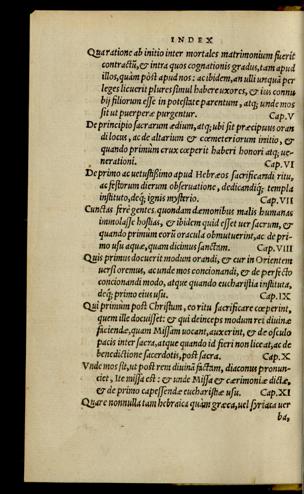 INDEX
Qua ratione ab initio inter mortales matrimonium fuerit
contractũ, & intra quos cognationis gradus, tam apud
illos, quàm pòst apud nos: ac ibidem, an ulli unquã per
leges licuerit plures simul habere uxores, & ius connu
bij filiorum esse in potestate parentum, atq; unde mos
sit ut puerperæ purgentur. Cap.V
De principio sacrarum ædium, atq; ubi sit præcipuus oran
di locus, ac de altarium & cœmeteriorum initio, &
quando primùm crux cœperit haberi honori atq; ue-
nerationi. Cap.VI
De primo ac uetustissimo apud Hebræos sacrificandi ritu,
ac festorum dierum obseruatione, dedicandiq; templa
instituto, deq; ignis mysterio. Cap.VII
Cunctas ferè gentes quondam dæmonibus malis humanas
immolasse hostias, & ibidem quid esset uer sacrum, &
quando primùm eorũ oracula obmutuerint, ac de pri-
mo usu aquæ, quam dicimus sanctam. Cap.VIII
Quis primus docuerit modum orandi, & cur in Orientem
uersi oremus, ac unde mos concionandi, & de perfecto
concionandi modo, atque quando eucharistia instituta,
deq; primo eius usu. Cap.IX
Qui primum post Christum, eo ritu sacrificare cœperint,
quem ille docuisset: & qui deinceps modum rei diuinæ
faciendæ, quam Missam uocant, auxerint, & de osculo
pacis inter sacra, atque quando id fieri non liceat, ac de
benedictione sacerdotis, post sacra. Cap.X
Vnde mos sit, ut post rem diuinã factam, diaconus pronun-
ciet, Ite missa est: & unde Missa & cærimoniæ dictæ,
& de primo capessendæ eucharistiæ usu. Cap.XI
Quare nonnulla tam hebraica quàm græca, uel syriaca uer
ba,